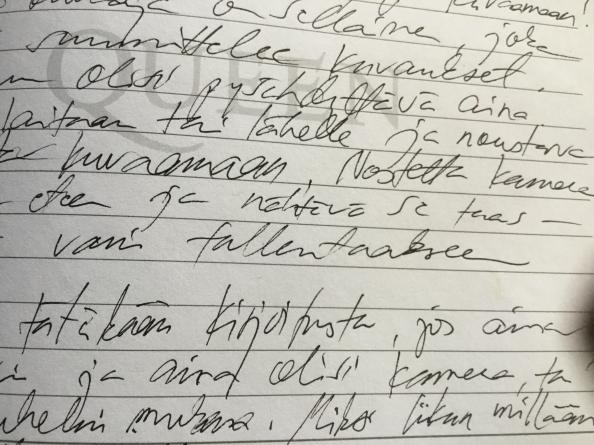 on sellainen, joka kuvaamaan!
suunnittelee kuvaukset.
QUEEN
olisi pysähdyttävä aina
tai lähelle ja noustava
kuvaamaan. Nostetta kamera
eteen ja nähtävä se taas –
vain tallentaakseen
tätäkään kirjoitusta, jos aina
ja aina olisi kamera, tai
mukana. Miksi liikun millään